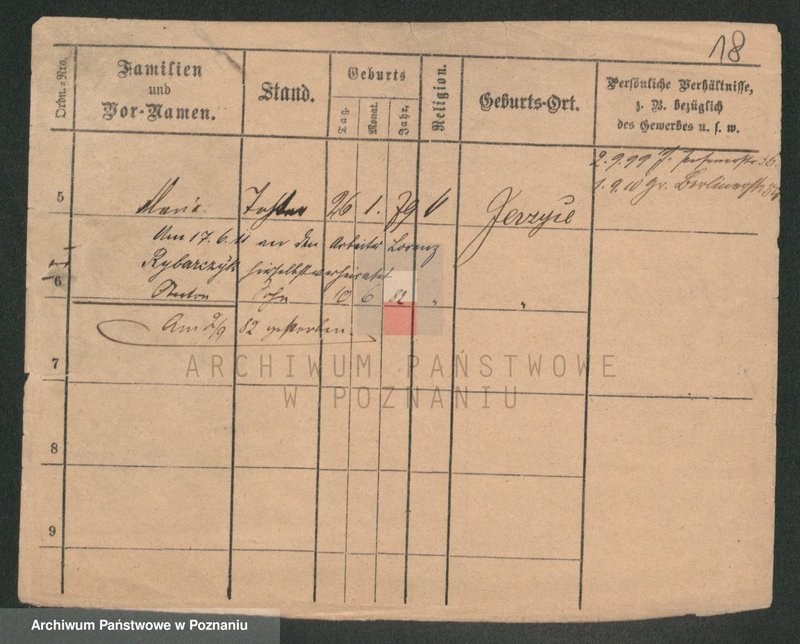 18
Ordn.-Nro.
Familien
und
Vor-Namen.
Stand.
Geburts
Tag.
Monat.
Jahr.
Religion.
Geburts-Ort.
Persönliche Verhältnisse,
z. B. bezüglich
des Gewerbes u. s. w.
2.9.99
1.9.10 Gr. Berlinerstr.
5
Maria. Tochter 26 1. 79 Jerzyce
Am 17.6. an den Arbeiter Lorenz
Rybarczyk hierselbst verheiratet
6
Anton Sohn 10 6 82 " "
Am 2/9 82 gestorben.
7
ARCHIWUM PAŃSTWOWE
W POZNANIU
8
9
Archiwum Państwowe w Poznaniu